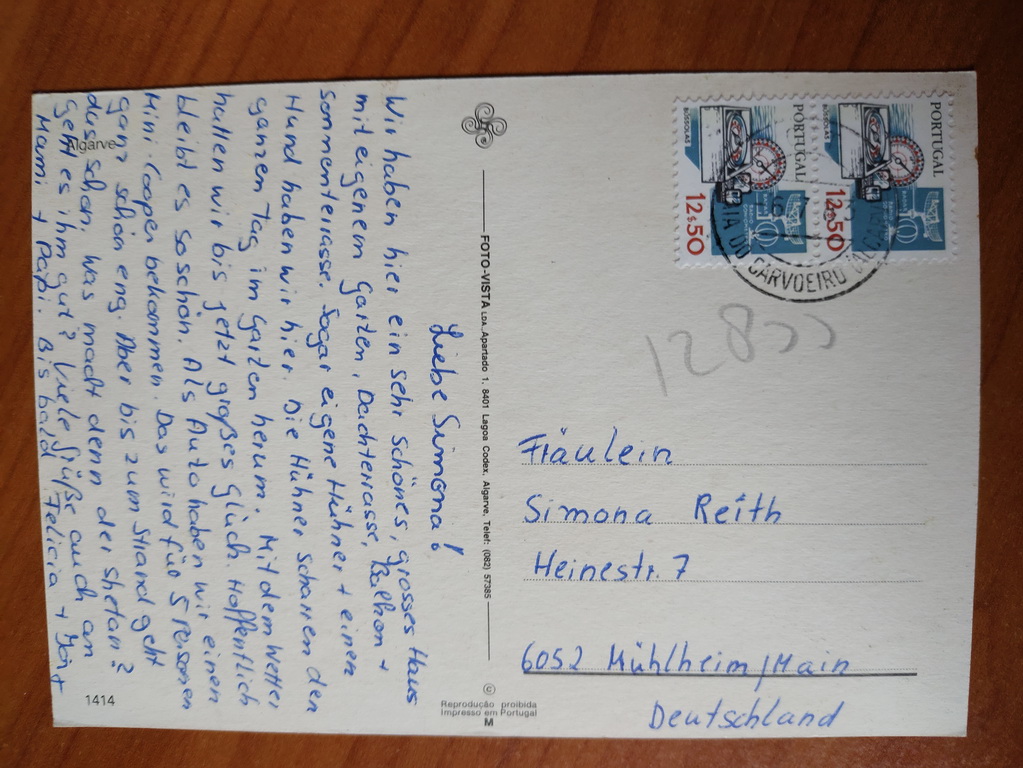 Algarve
Liebe Simona!
Wir haben hier ein sehr schönes, grosses Haus
mit eigenem Garten, Dachterrasse, Balkon +
Sonnenterrasse. Sogar eigene Hühner + einen
Hund haben wir hier. Die Hühner scharren den
ganzen Tag im Garten herum. Mit dem Wetter
hatten wir bis jetzt großes Glück. Hoffentlich
bleibt es so schön. Als Auto haben wir einen
Mini-Cooper bekommen. Das wird für 5 Personen
ganz schön eng. Aber bis zum Strand geht
das schon. Was macht denn der Shetan?
Geht es ihm gut? Viele Grüße auch an
Mami + Papi. Bis bald Felicia + Jörg
1414
FOTO-VISTA LDA. Apartado 1. 8401 Lagoa Codex, Algarve, Telef: (082) 57385
©
Reprodução proibida
Impresso em Portugal
M
PORTUGAL
BÚSSOLAS
12$50
PORTUGAL
12$50
CARVOEIRO
12833
Fräulein
Simona Reith
Heinestr. 7
6052 Mühlheim/Main
Deutschland